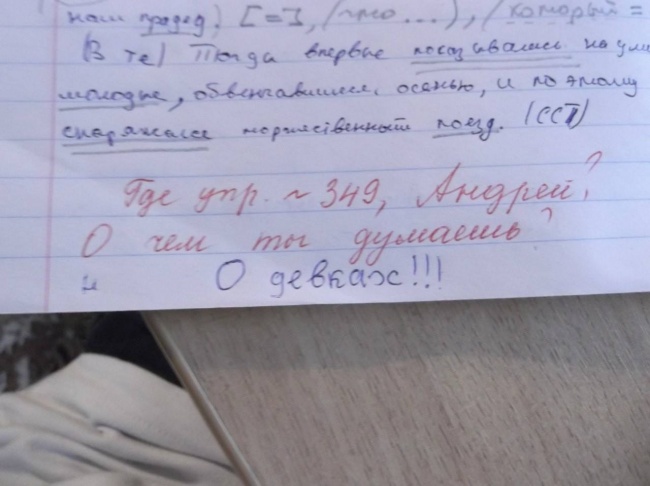 наш прадед, [=], (что ...), (который =
(В те) Тогда впервые показывались на ули
молодые, обвенчавшиеся осенью, и поэтому
снаряжался торжественный поезд. (ССП)
Где упр. ~ 349, Андрей?
О чем ты думаешь?
О девках!!!